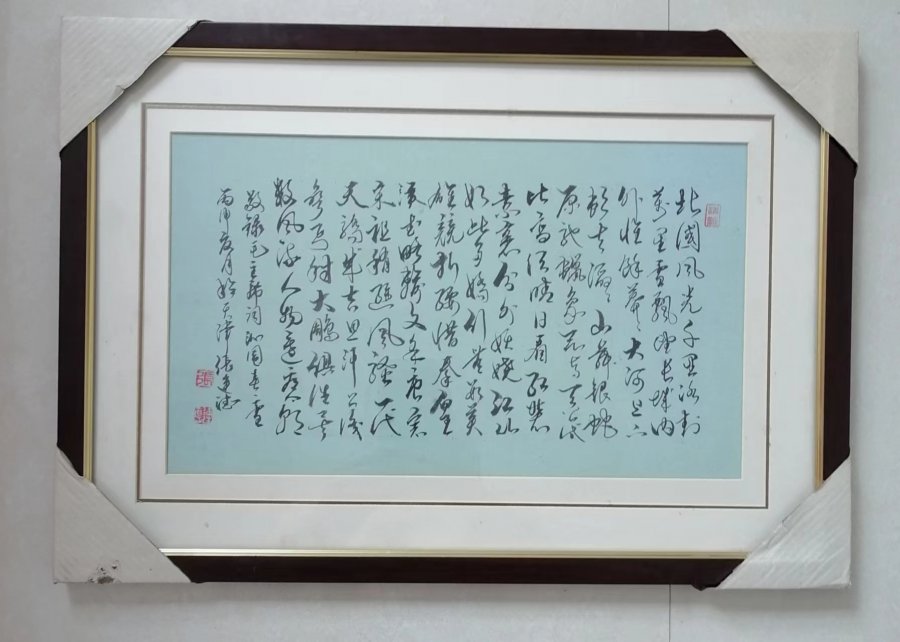 北國風光千里冰封
萬里雪飄望長城內
外惟餘莽莽大河上下
頓失滔滔山舞銀蛇
原馳蠟象欲與天公試
比高須晴日看紅裝
素裹分外妖嬈江山
如此多嬌引無數英
雄競折腰惜秦皇
漢武略輸文采唐宗
宋祖稍遜風騷一代
天驕成吉思汗只識
彎弓射大鵰俱往矣
數風流人物還看今朝
敬錄毛主席詞沁園春雪
丙申夏月於天津張